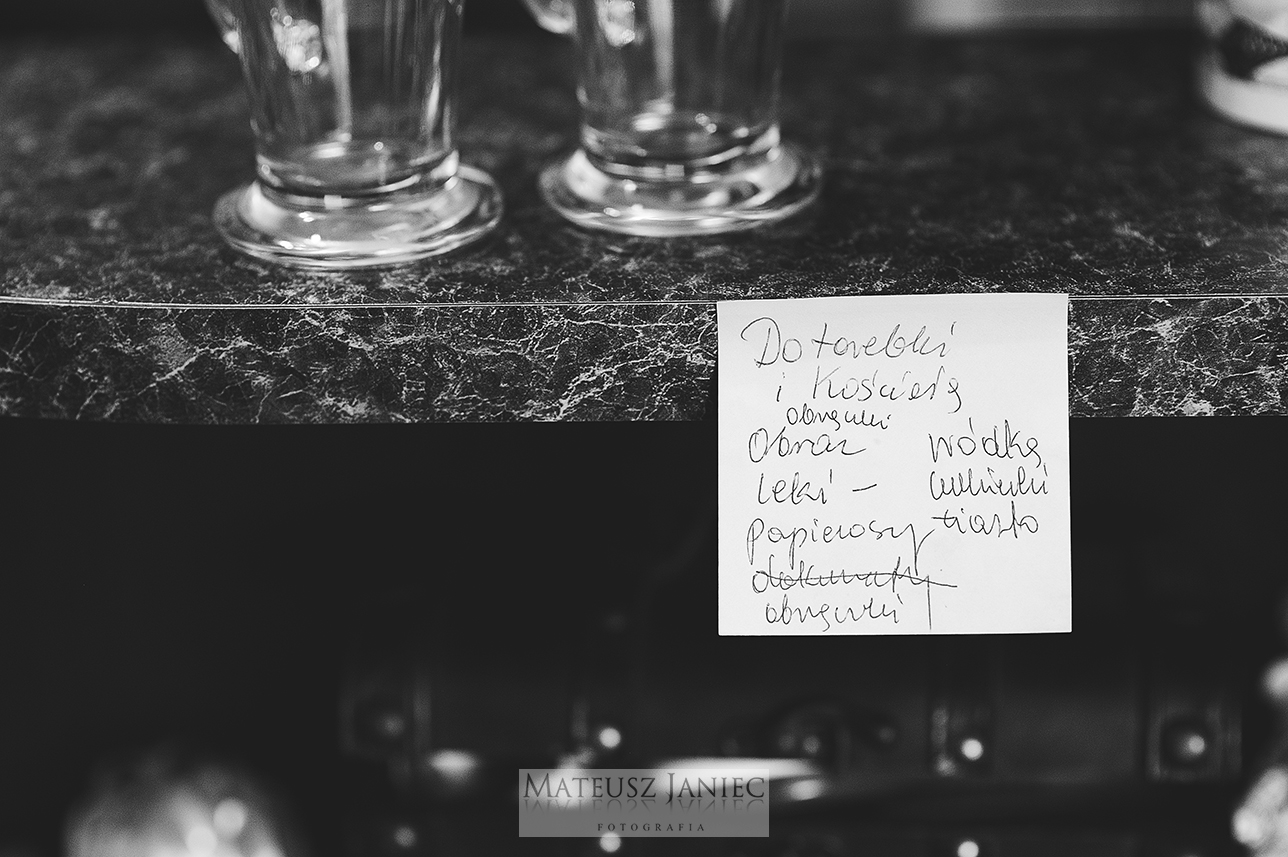 Do torebki
i Kościoła
obrączki
Obraz
leki –
papierosy
dokumenty
obrączki
wódka
cukierki
ciasto
MATEUSZ JANIEC
FOTOGRAFIA